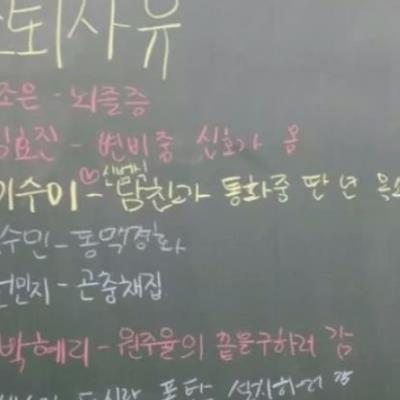 퇴사유
조은 - 뇌졸증
김효진 - 변비중 신호가 옴
♡신병신
이수미 - 남친과 통화중 딴 년 목소
수민 - 동맥경화
민지 - 곤충채집
박혜리 - 원주율의 끝을 구하러 감
폭탄 설치하러 감